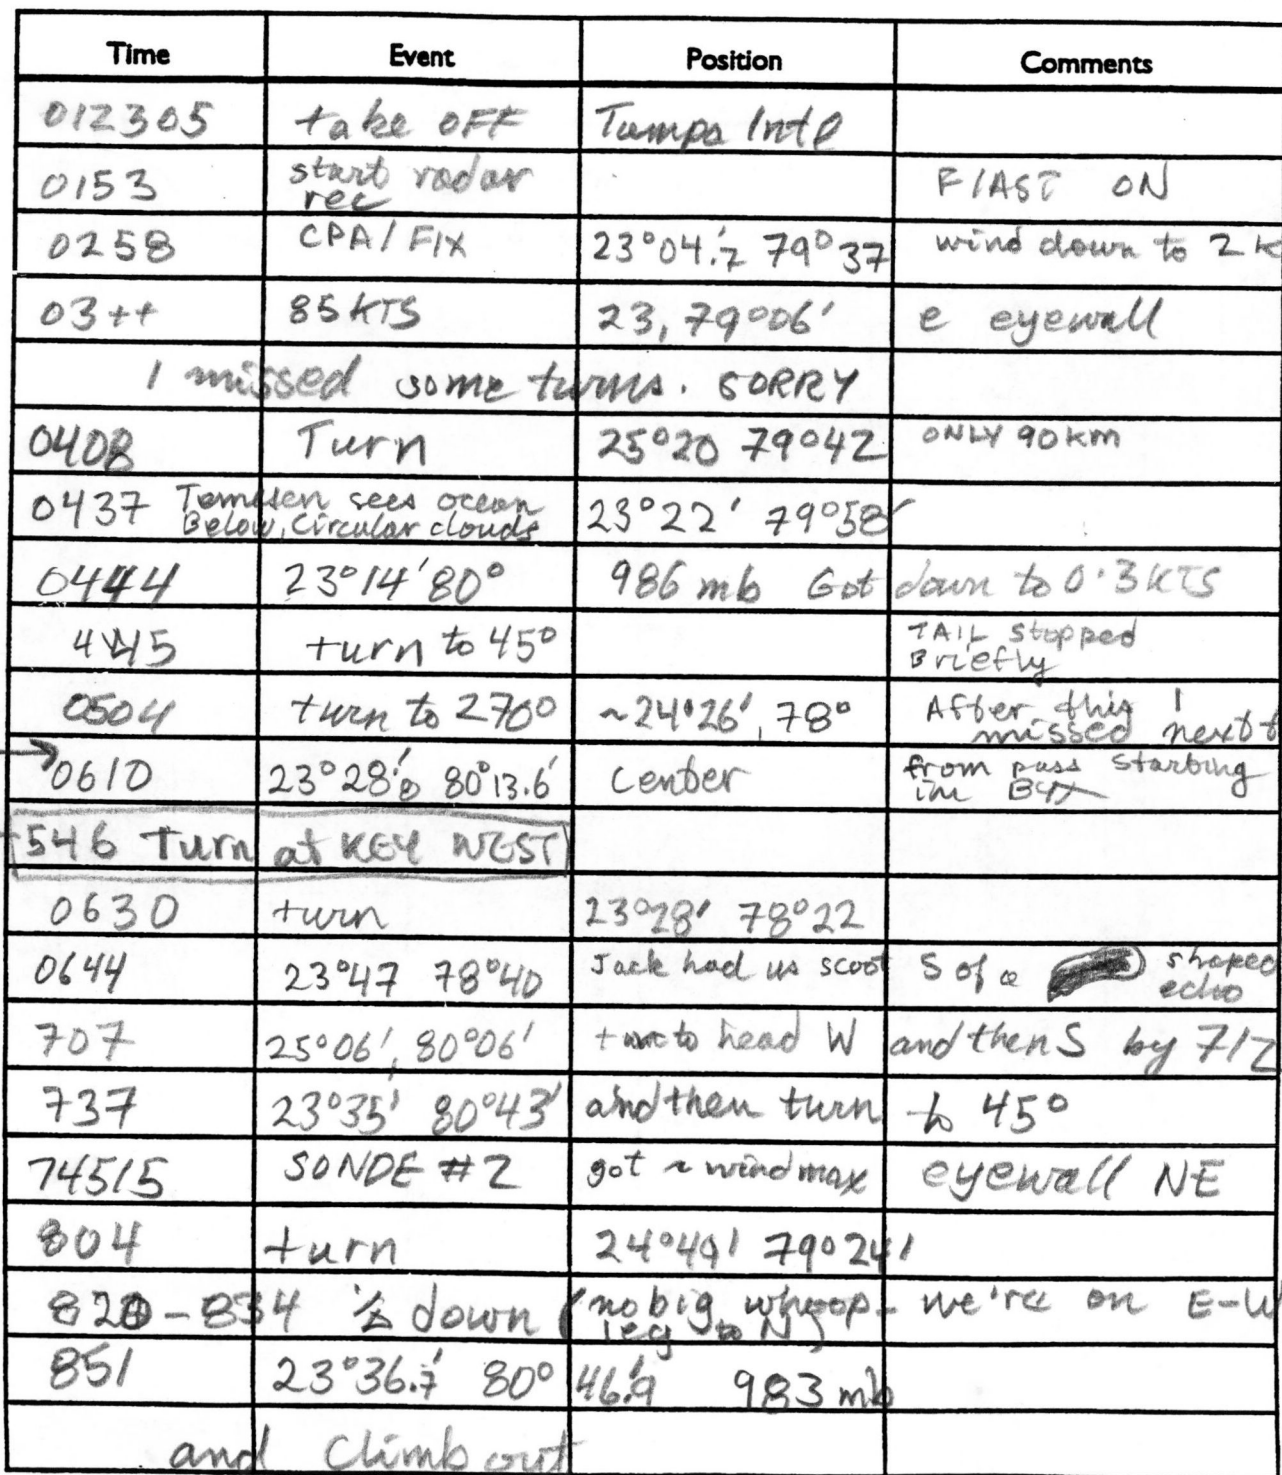 Time Event Position Comments
012305 take OFF Tampa Intl
0153 start radar rec F/AST ON
0258 CPA/FIX 23°04.'7 79°37 wind down to 2 k
03++ 85 KTS 23, 79°06' e eyewall
I missed some turns. SORRY
0408 Turn 25°20 79°42 ONLY 90 km
0437 sees ocean Below, Circular clouds 23°22' 79°58'
0444 23°14' 80° 986 mb Got down to 0.3 KTS
445 turn to 45° TAIL stopped Briefly
0504 turn to 270° ~24°26', 78° After this I missed next t
0610 23°28.' 80°13.6' center from pass starting in
546 Turn at KEY WEST
0630 turn 23°28' 78°22
0644 23°47 78°40 Jack had us scoot S of a shaped echo
707 25°06', 80°06' turn to head W and then S by 712
737 23°35' 80°43' and then turn to 45°
74515 SONDE #2 got ~ wind max eyewall NE
804 turn 24°49' 79°24'
820-834 down (no big whoop - we're on E-W leg to N)
851 23°36.'7 80° 46.'9 983 mb
and Climb out